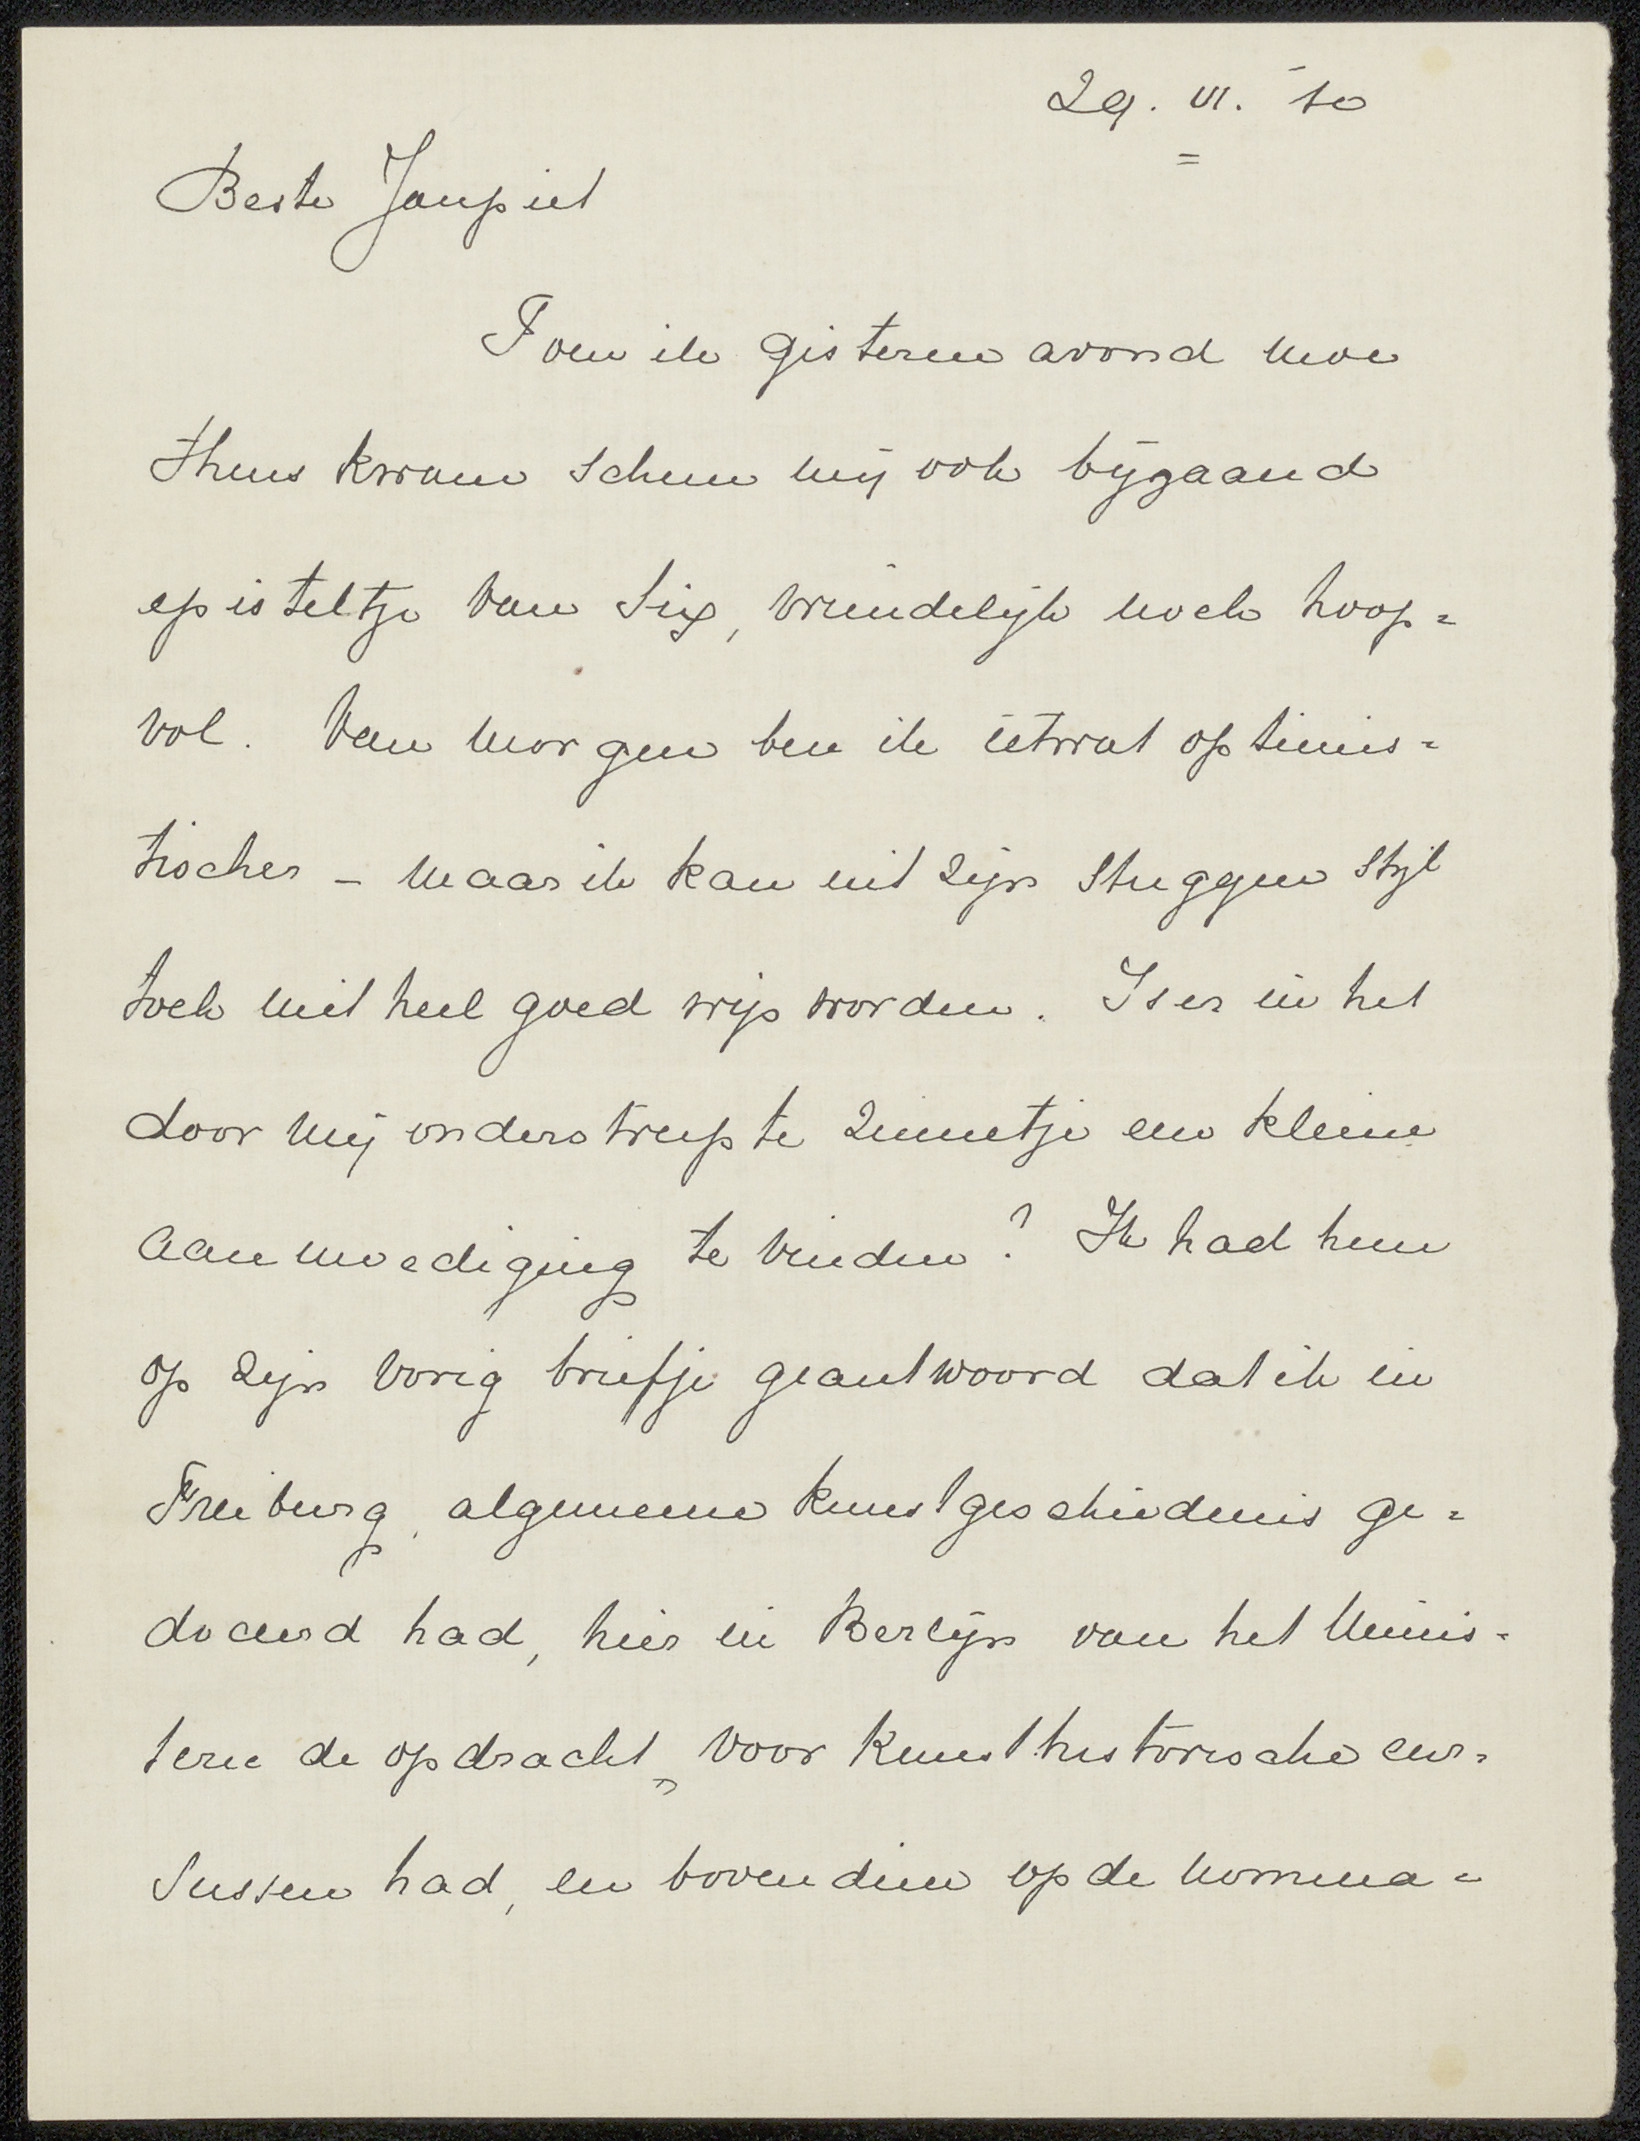 29. VI. 10
Beste Janpiet
Toen ik gisteren avond moe
thuis kwam scheen mij ook bijgaand
episteltje van Six, vriendelijk noch hoop=
vol. Van morgen ben ik ietwat optimis=
tischer - maar ik kan uit zijn stuggen stijl
toch niet heel goed wijs worden. Is er in het
door mij onderstreepte zinnetje een kleine
aanmoediging te vinden? Ik had hem
op zijn vorig briefje geantwoord dat ik in
Freiburg, algemeene kunstgeschiedenis ge=
doceerd had, hier in Berlijn van het Minis=
terie de opdracht „ voor kunsthistorische cur=
sussen had, en bovendien op de nomina=